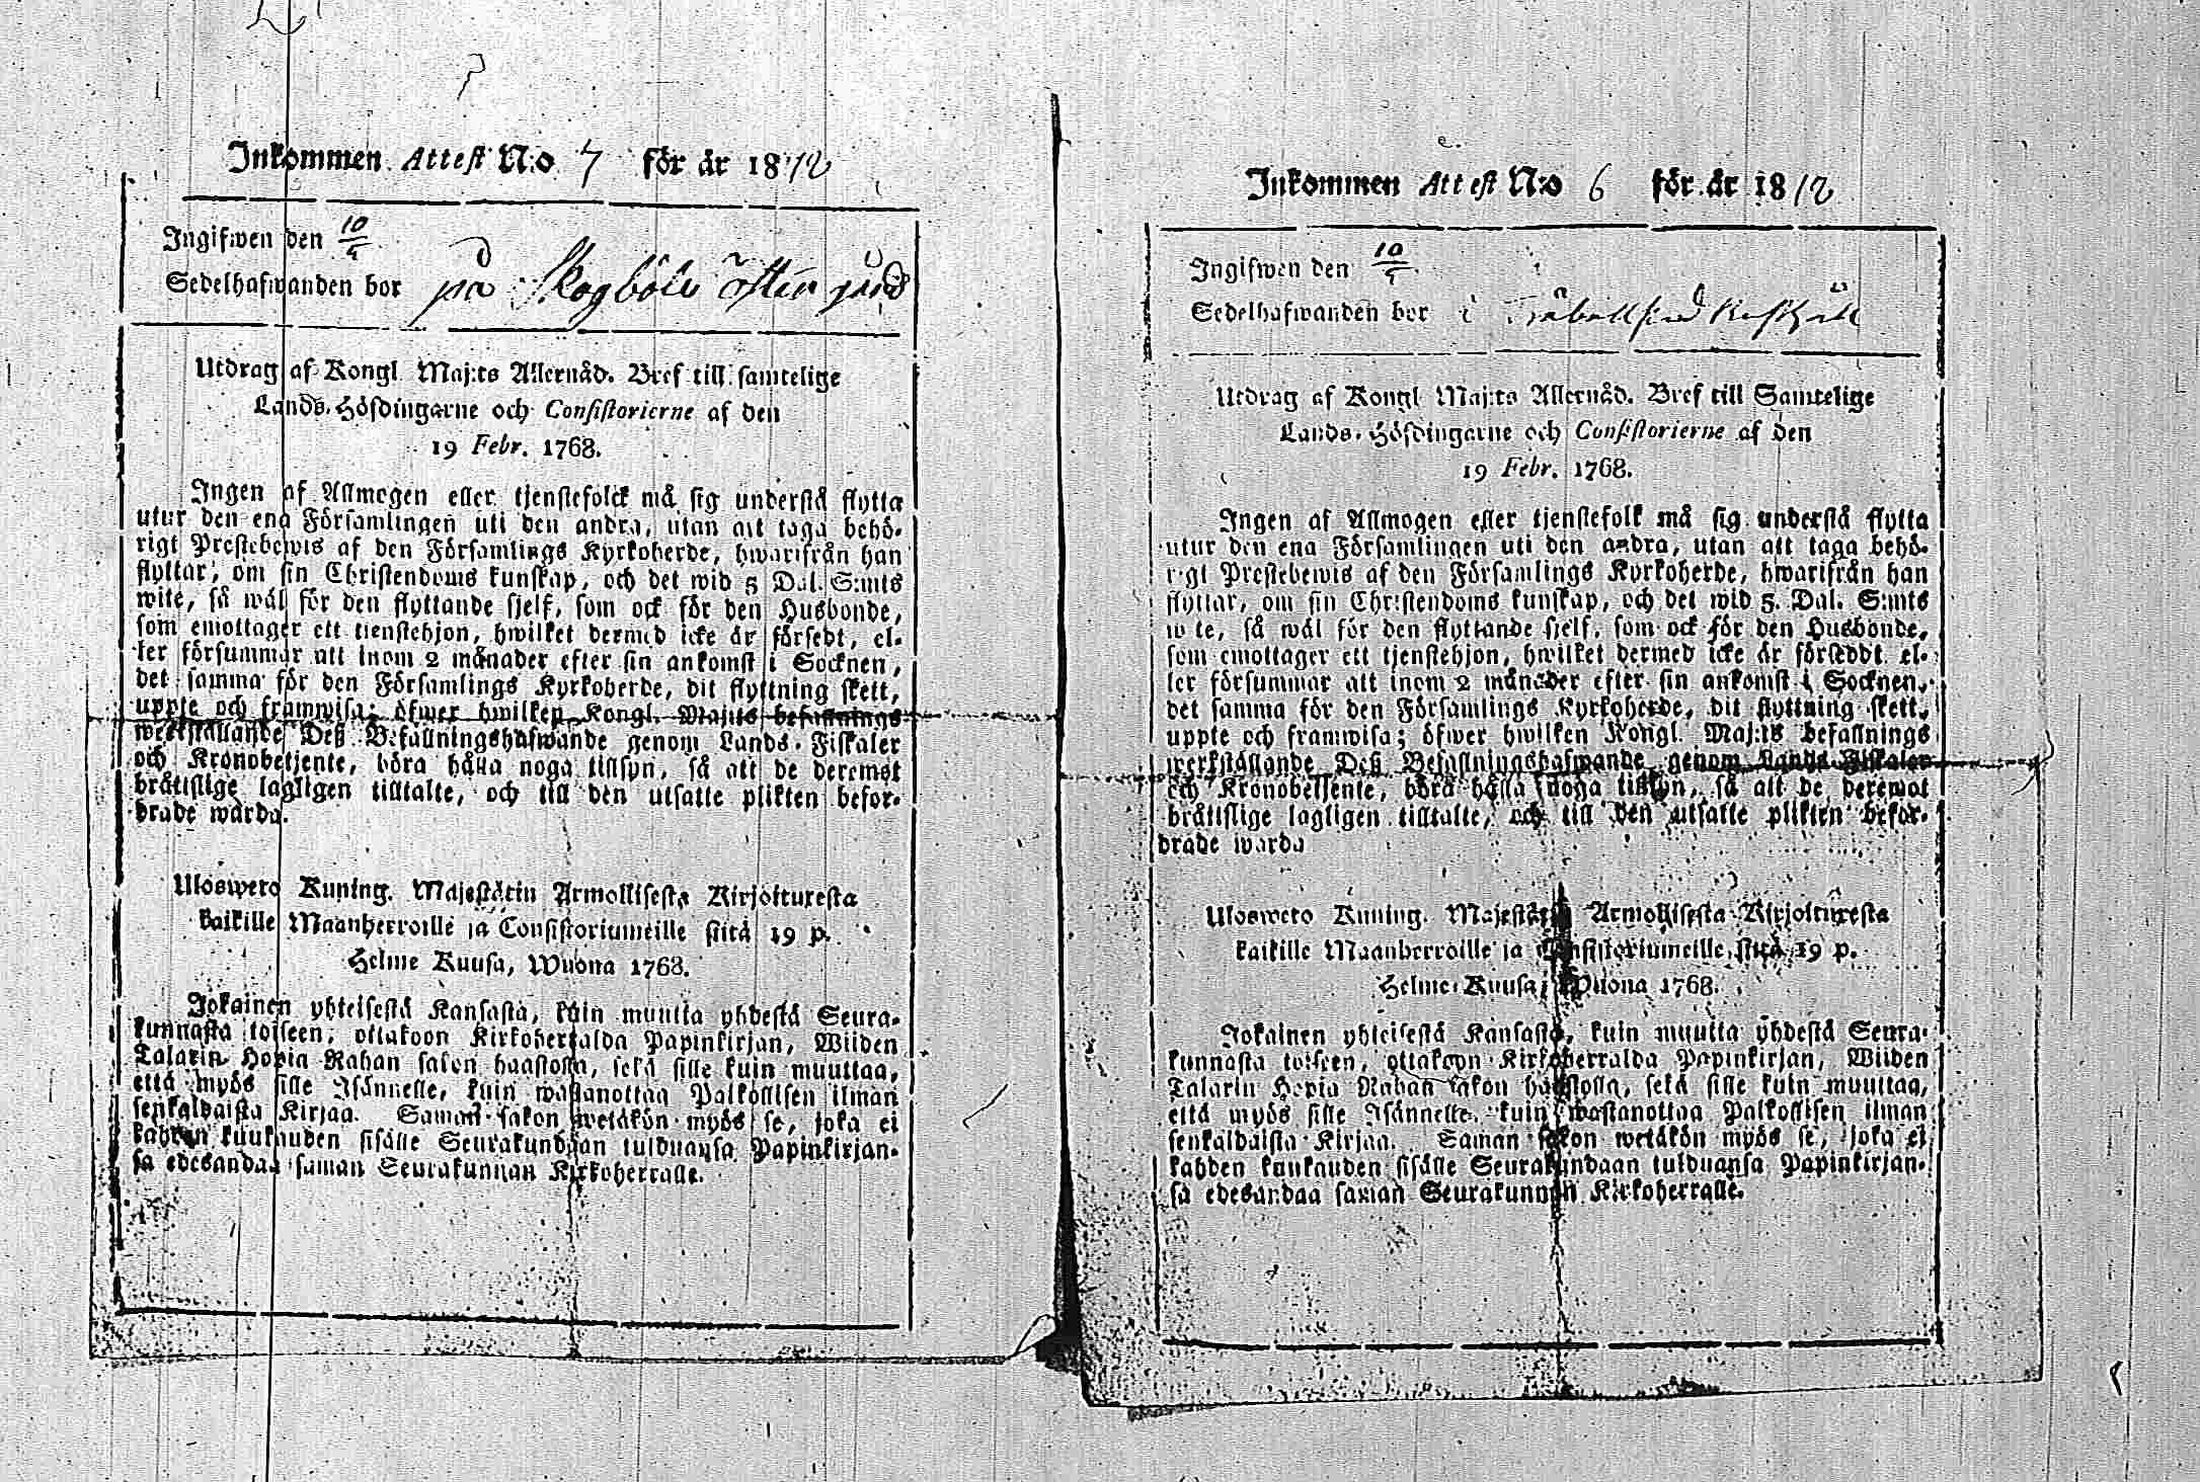 Inkommen Attest N:o 7 för år 1812
Ingifwen den 10/5
Sedelhafwanden bor på Skogböle öster
Utdrag af Kongl. Maj:ts Allernåd. Bref till samtelige
Lands-Höfdingarne och Consistorierne af den
19 Febr. 1768.
Ingen af Allmogen eller tjenstefolck må sig understå flytta
utur den ena Församlingen uti den andra, utan att taga behö-
rigt Prestebewis af den Församlings Kyrkoherde, hwarifrån han
flyttar, om sin Christendoms kunskap, och det wid 5 Dal. S:mts
wite, så wäl för den flyttande sjelf, som ock för den Husbonde,
som emottager ett tienstehjon, hwilket dermed icke är försedt, el-
ler försummar att inom 2 månader efter sin ankomst i Socknen,
det samma för den Församlings Kyrkoherde, dit flyttning skett,
uppte och framwisa; öfwer hwilken Kongl. Maj:ts befallnings
werkställande Deß Befallningshafwande genom Lands-Fiskaler
och Kronobetjente, böra hålla noga tillsyn, så att de deremot
bråttslige lagligen tilltalte, och till den utsatte plikten befor-
drade warda.
Uloswето Kuning. Majestätin Armollisesta Kirjoituxesta
kaikille Maanherroille ja Consistoriumeille siitä 19 p.
Helme Kuusa, Wuona 1768.
Jokainen yhteisestä Kansasta, kuin muutta yhdestä Seura-
kunnasta toiseen, ottakoon Kirkoherralda Papinkirjan, Wiiden
Talarin Hopia Rahan sakon haastolla, sekä sille kuin muuttaa,
että myös sille Isännelle, kuin wastanottaa Palkollisen ilman
senkaldaista Kirjaa. Saman sakon wetäkön myös se, joka ei
kahden kuukauden sisälle Seurakundaan tulduansa Papinkirjan-
sa edesandaa saman Seurakunnan Kirkoherralle.
Inkommen Attest N:o 6 för år 1812
Ingifwen den 10/5
Sedelhafwanden bor i
Utdrag af Kongl. Maj:ts Allernåd. Bref till Samtelige
Lands-Höfdingarne och Consistorierne af den
19 Febr. 1768.
Ingen af Allmogen eller tjenstefolk må sig understå flytta
utur den ena Församlingen uti den andra, utan att taga behö-
rigt Prestebewis af den Församlings Kyrkoherde, hwarifrån han
flyttar, om sin Christendoms kunskap, och det wid 5. Dal. S:mts
wite, så wäl för den flyttande sjelf, som ock för den Husbonde,
som emottager ett tjenstehjon, hwilket dermed icke är förseddt, el-
ler försummar att inom 2 månader efter sin ankomst i Socknen,
det samma för den Församlings Kyrkoherde, dit flyttning skett,
uppte och framwisa; öfwer hwilken Kongl. Maj:ts befallnings
werkställande Deß Befallningshafwande genom Lands-Fiskaler
och Kronobetjente, böra hålla noga tillsyn, så att de deremot
bråttslige lagligen tilltalte, och till den utsatte plikten befor-
drade warda
Uloswето Kuning. Majestätin Armollisesta Kirjoituxesta
kaikille Maanherroille ja Consistoriumeille, siitä 19 p.
Helme Kuusa, Wuona 1768.
Jokainen yhteisestä Kansasta, kuin muutta yhdestä Seura-
kunnasta toiseen, ottakoon Kirkoherralda Papinkirjan, Wiiden
Talarin Hopia Rahan sakon haastolla, sekä sille kuin muuttaa,
että myös sille Isännelle, kuin wastanottaa Palkollisen ilman
senkaldaista Kirjaa. Saman sakon wetäkön myös se, joka ei
kahden kuukauden sisälle Seurakundaan tulduansa Papinkirjan-
sa edesandaa saman Seurakunnan Kirkoherralle.